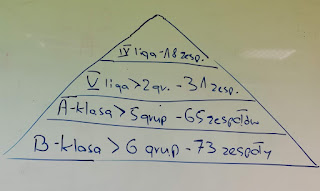 IV liga - 18 zesp.
V liga > 2 gr. - 31 zesp.
A-klasa > 5 grup - 65 zespołów
B-klasa > 6 grup - 73 zespoły